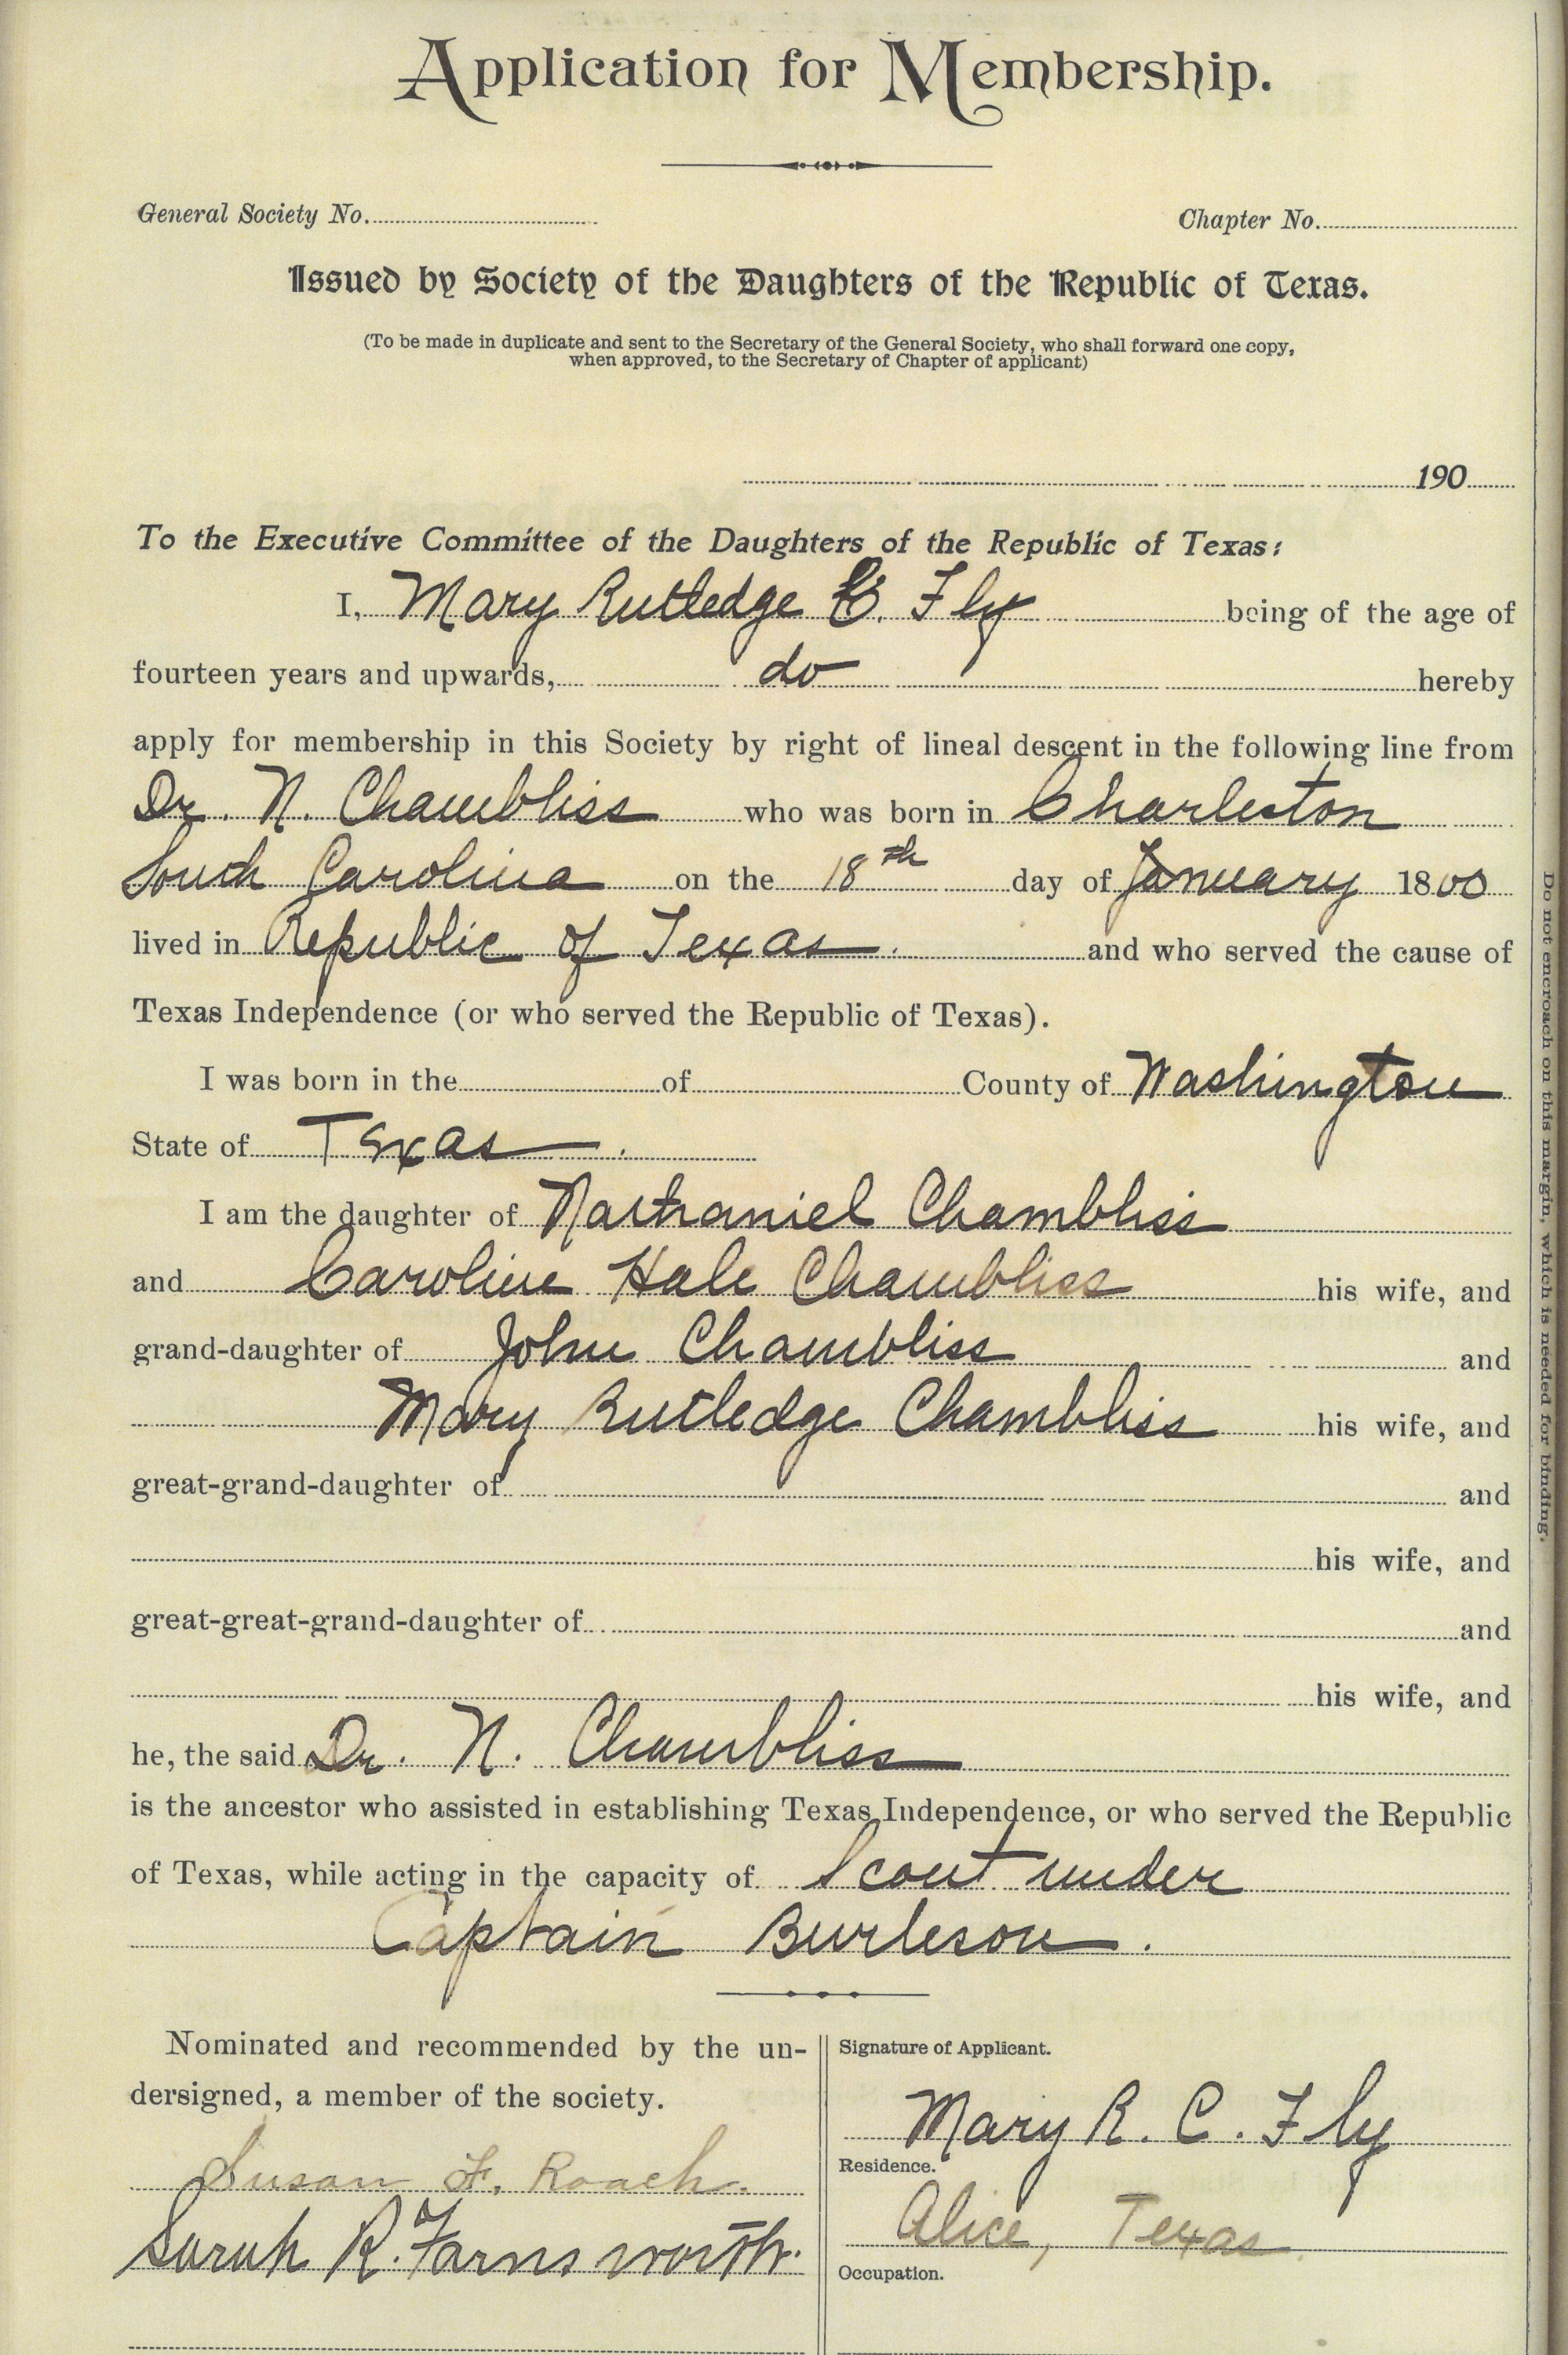 Application for Membership.
General Society No. Chapter No.
Issued by Society of the Daughters of the Republic of Texas.
(To be made in duplicate and sent to the Secretary of the General Society, who shall forward one copy,
when approved, to the Secretary of Chapter of applicant)
190
To the Executive Committee of the Daughters of the Republic of Texas:
I, Mary Rutledge C. Fly being of the age of
fourteen years and upwards, do hereby
apply for membership in this Society by right of lineal descent in the following line from
Dr. N. Chambliss who was born in Charleston
South Carolina on the 18th day of January 1800
lived in Republic of Texas. and who served the cause of
Texas Independence (or who served the Republic of Texas).
I was born in the of County of Washington
State of Texas.
I am the daughter of Nathaniel Chambliss
and Caroline Hale Chambliss his wife, and
grand-daughter of John Chambliss and
Mary Rutledge Chambliss his wife, and
great-grand-daughter of and
his wife, and
great-great-grand-daughter of and
his wife, and
he, the said Dr. N. Chambliss
is the ancestor who assisted in establishing Texas Independence, or who served the Republic
of Texas, while acting in the capacity of Scout under
Captain Burleson.
Nominated and recommended by the un-
dersigned, a member of the society.
Susan F. Roach.
Sarah R. Farnsworth.
Signature of Applicant.
Mary R. C. Fly
Residence.
Alice, Texas
Occupation.
Do not encroach on this margin, which is needed for binding.